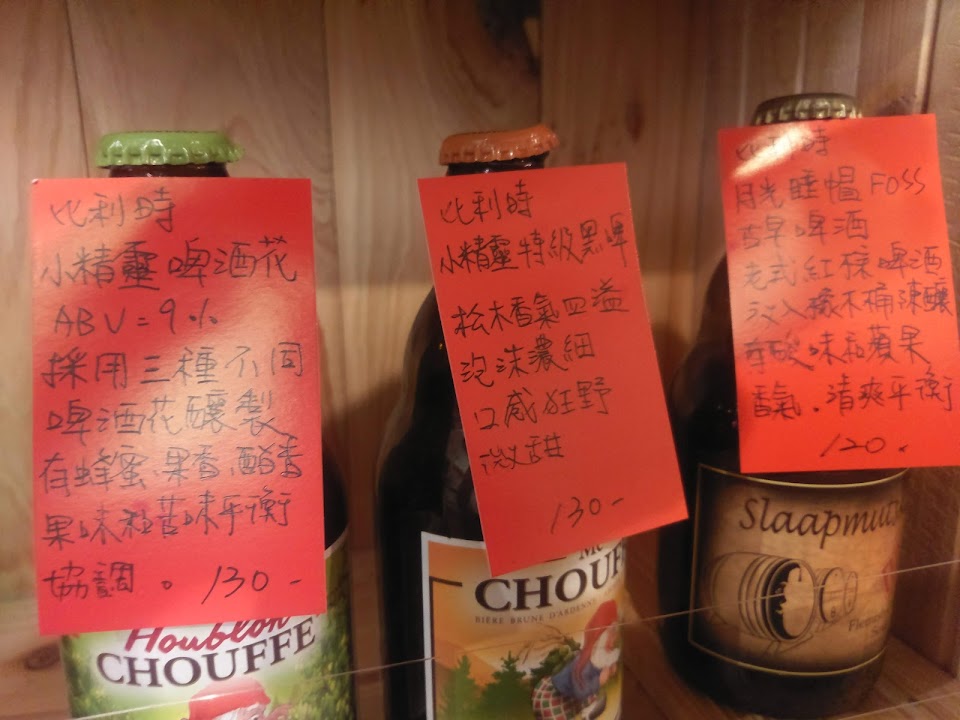 比利時
小精靈啤酒花
ABV=9%
採用三種不同
啤酒花釀製
有蜂蜜果香,酯香
果味和苦味平衡
協調。130-
Houblon
CHOUFFE
比利時
小精靈特級黑啤
松木香氣四溢
泡沫濃細
口感狂野
微甜
130-
Mc
CHOUF
BIÈRE BRUNE D'ARDENNE
比利時
月光睡帽 FOSS
古早啤酒
老式紅棕啤酒
沉入橡木桶陳釀
酸味和蘋果
香氣.清爽平衡
120.
Slaapmuts